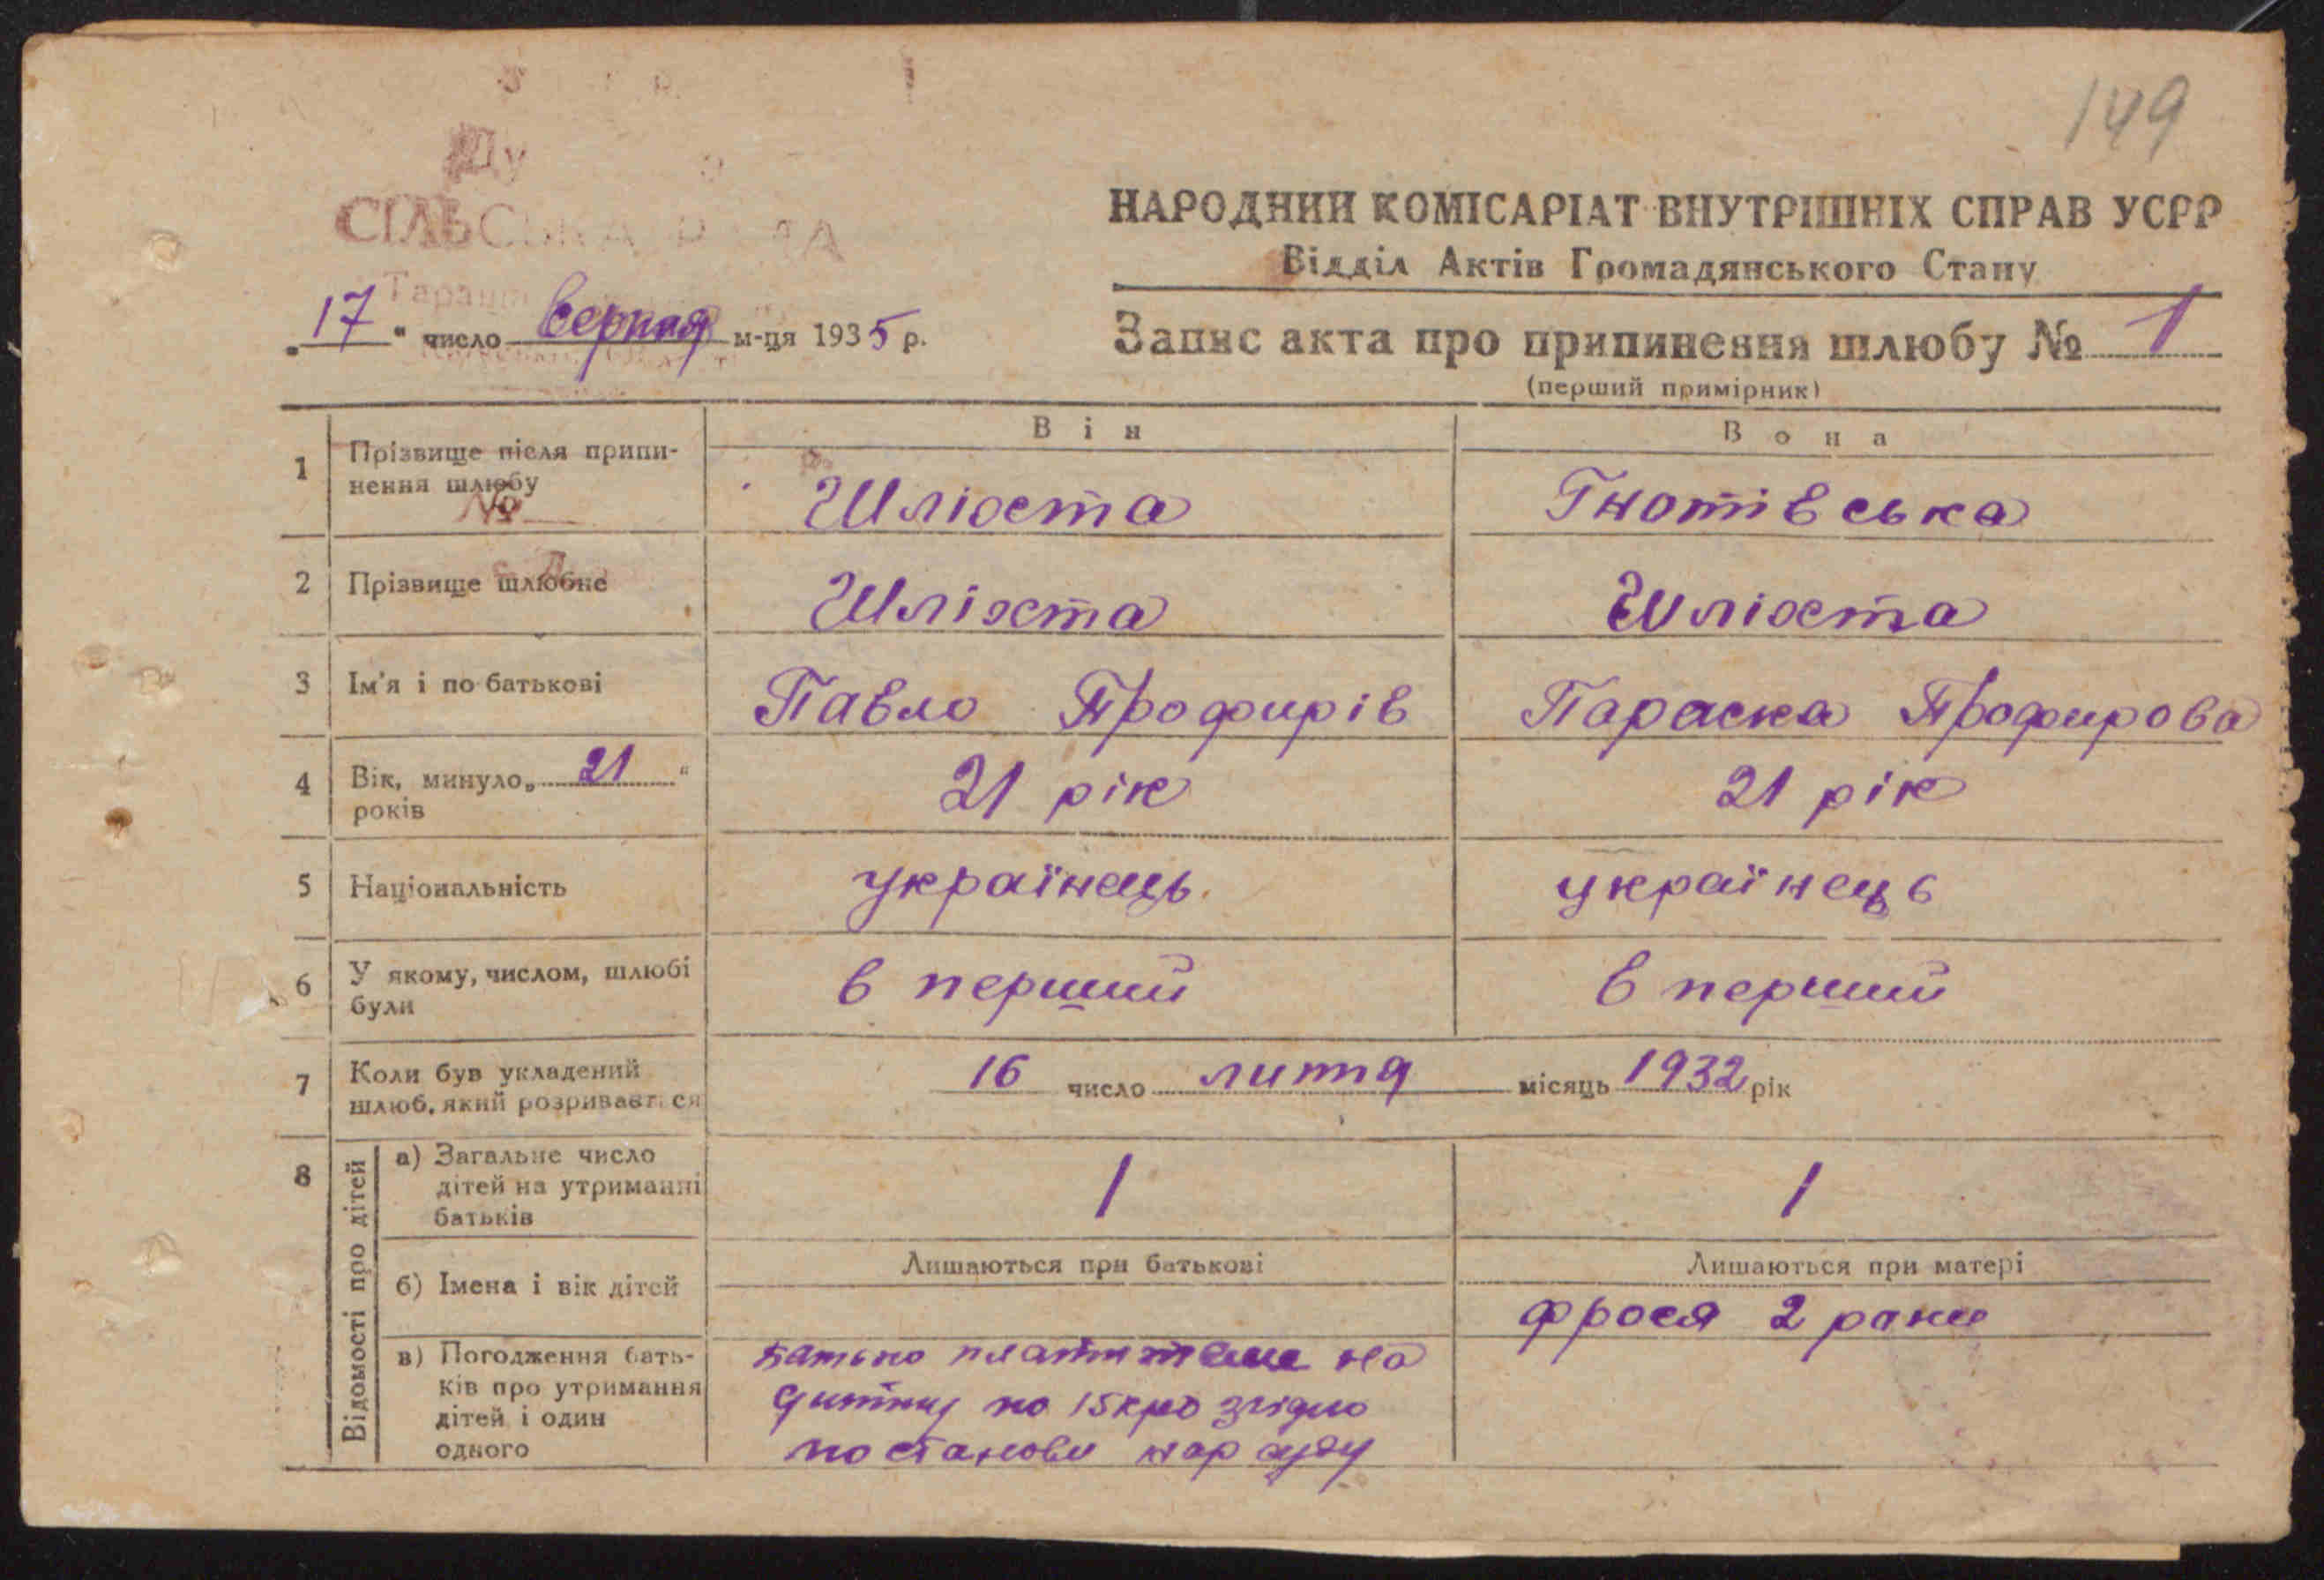 149
Ду
СІЛЬСЬКА РАДА
НАРОДНИЙ КОМІСАРІАТ ВНУТРІШНІХ СПРАВ УСРР
Відділ Актів Громадянського Стану
„17" число серпня м-ця 1935 р.
Запис акта про припинення шлюбу № 1
(перший примірник)
Він
Вона
1 Прізвище після припи-
нення шлюбу
Шліхта
Гнотівська
№
2 Прізвище шлюбне
Шліхта
Шліхта
3 Ім'я і по-батькові
Павло Профирів
Параска Профирова
4 Вік, минуло „21"
років
21 рік
21 рік
5 Національність
українець
українець
6 У якому, числом, шлюбі
були
в перший
в перший
7 Коли був укладений
шлюб, який розривається
16 число липня місяць 1932 рік
8 Відомості про дітей
а) Загальне число
дітей на утриманні
батьків
1
1
б) Імена і вік дітей
Лишаються при батькові
Лишаються при матері
Фрося 2 роки
в) Погодження бать-
ків про утримання
дітей і один
одного
батько платитеме на
дитину по 15 крб згідно
постанови нар суду